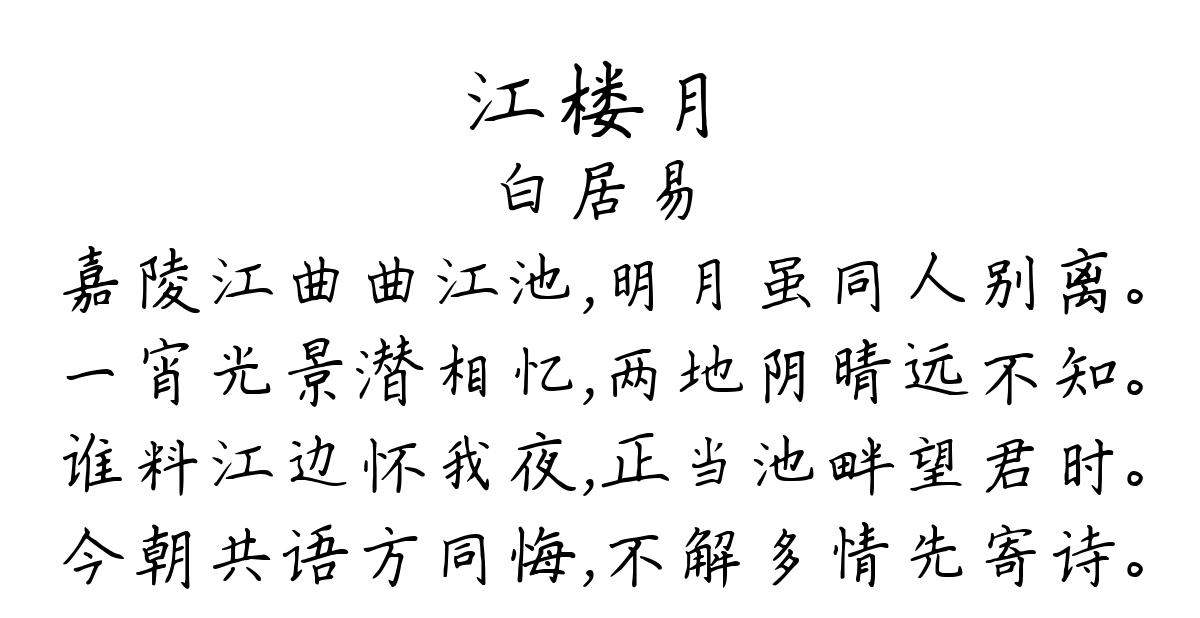 江楼月
白居易
嘉陵江曲曲江池,明月虽同人别离。
一宵光景潜相忆,两地阴晴远不知。
谁料江边怀我夜,正当池畔望君时。
今朝共语方同悔,不解多情先寄诗。